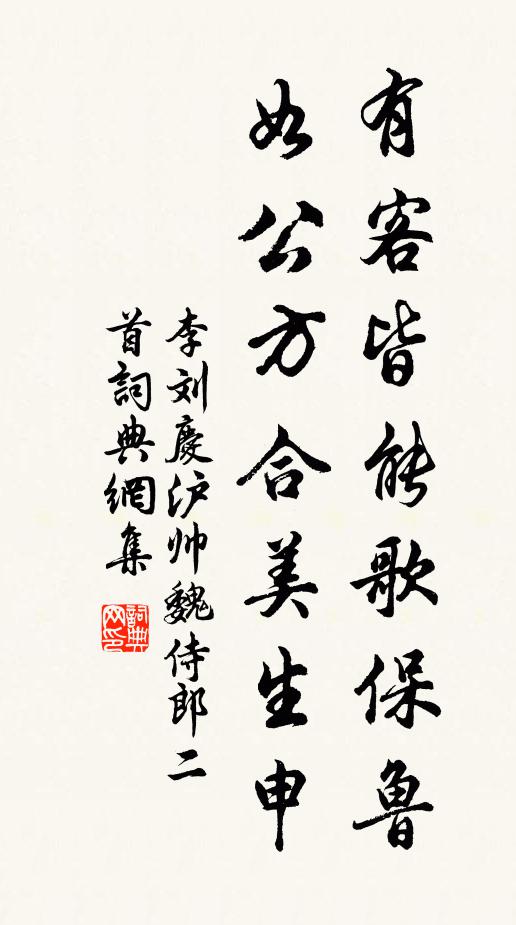 有客皆能歌保鲁
如公方合美生申
李刘慶沪帅魏侍郎二
首詞典網集
詞典网印